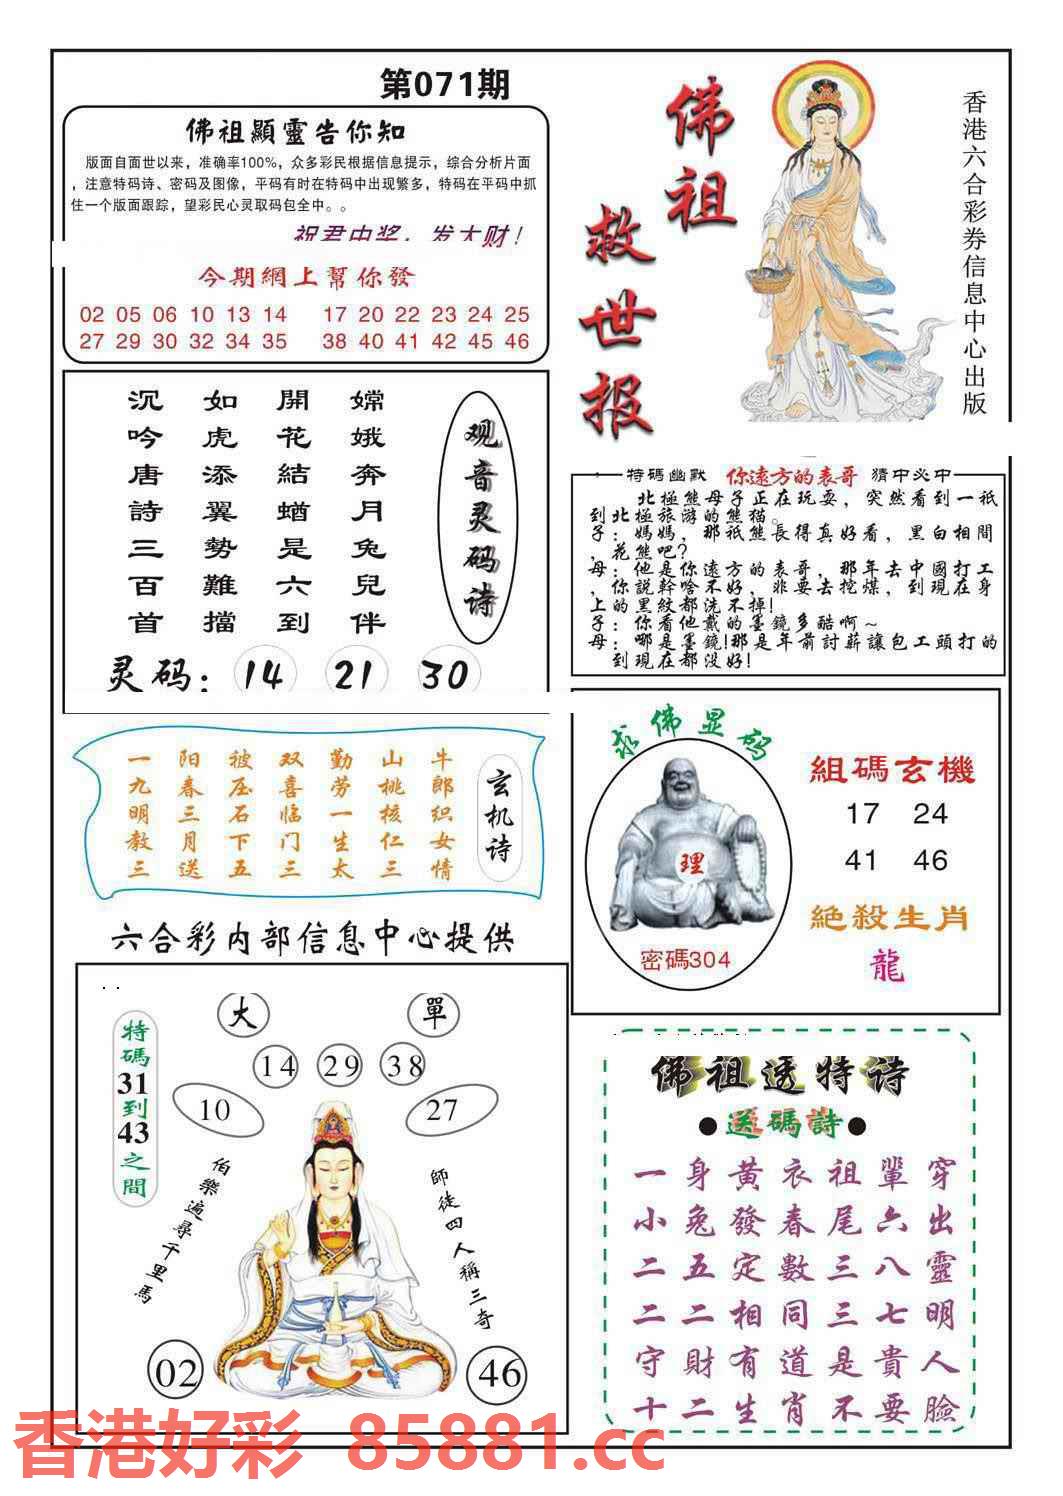 第071期
佛祖顯靈告你知
版面自面世以来，准确率100%，众多彩民根据信息提示，综合分析片面
，注意特码诗、密码及图像，平码有时在特码中出现繁多，特码在平码中抓
住一个版面跟踪，望彩民心灵取码包全中。。
祝君中奖，发大财！
今期網上幫你發
02 05 06 10 13 14 17 20 22 23 24 25
27 29 30 32 34 35 38 40 41 42 45 46
佛祖
救世报
香港六合彩券信息中心出版
观音灵码诗
嫦娥奔月兔兒伴
開花結蝤是六到
如虎添翼勢難擋
沉吟唐詩三百首
灵码：14 21 30
特碼幽默 你遠方的表哥 猜中必中
北極熊母子正在玩耍，突然看到一祇
到北極旅游的熊猫。
子：媽媽，那祇熊長得真好看，黑白相間
，花熊吧？
母：他是你遠方的表哥，那年去中國打工
，你説幹啥不好，非要去挖煤，到現在身
上的黑紋都洗不掉！
子：你看他戴的墨鏡多酷啊～
母：哪是墨鏡！那是年前討薪讓包工頭打的
到現在都没好！
玄机诗
牛郎织女情
山桃核仁三
勤劳一生太
双喜临门三
被压石下五
阳春三月送
一九明教三
求佛显码
理
密碼304
組碼玄機
17 24
41 46
絕殺生肖
龍
六合彩内部信息中心提供
特碼31到43之間
大 單
14 29 38
10 27
伯樂遍尋千里馬
師徒四人稱三奇
02 46
佛祖透特诗
●送碼詩●
一身黃衣祖輩穿
小兔發春尾六出
二五定數三八靈
二二相同三七明
守財有道是貴人
十二生肖不要臉
香港好彩 85881.cc